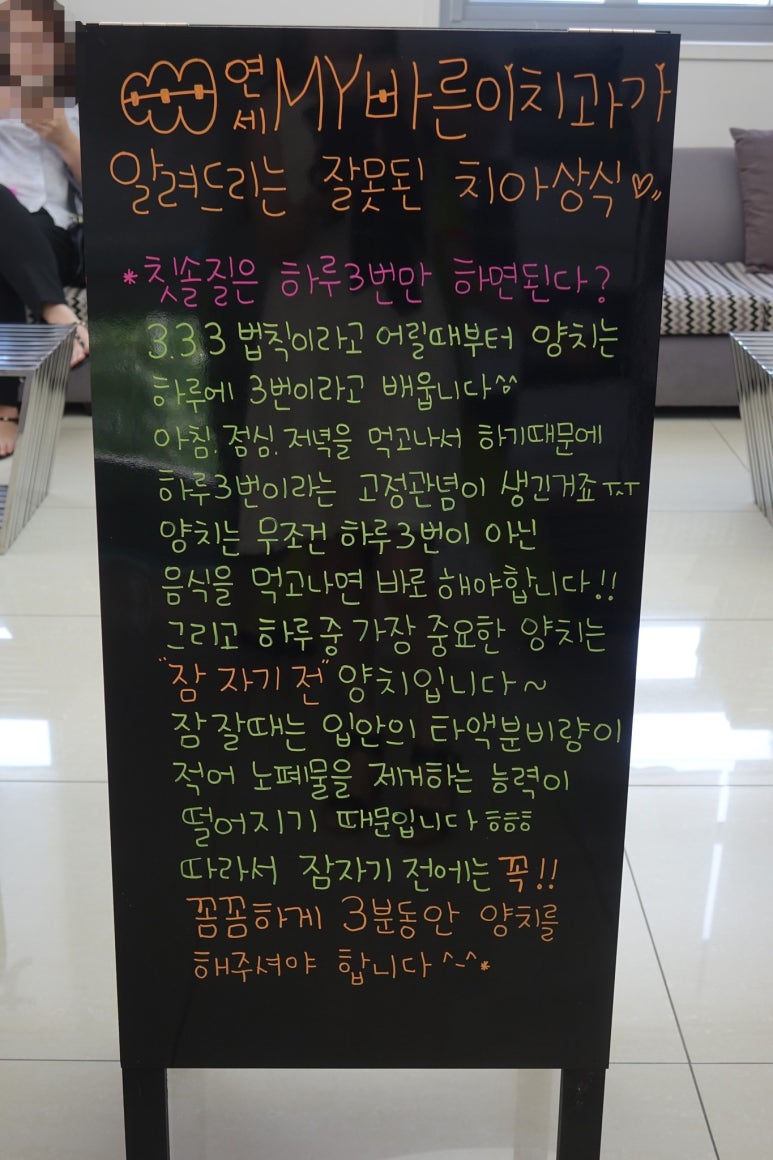 연세 MY바른이치과가
알려드리는 잘못된 치아상식♡,,
*칫솔질은 하루3번만 하면된다?
3.3.3 법칙이라고 어릴때부터 양치는
하루에 3번이라고 배웁니다^^
아침.점심.저녁을 먹고나서 하기때문에
하루3번이라는 고정관념이 생긴거죠ㅜㅅㅜ
양치는 무조건 하루3번이 아닌
음식을 먹고나면 바로 해야합니다!!
그리고 하루중 가장 중요한 양치는
"잠 자기 전" 양치입니다~
잠잘때는 입안의 타액분비량이
적어 노폐물을 제거하는 능력이
떨어지기 때문입니다ㅎㅎㅎ
따라서 잠자기 전에는 꼭!!
꼼꼼하게 3분동안 양치를
해주셔야 합니다^-^*